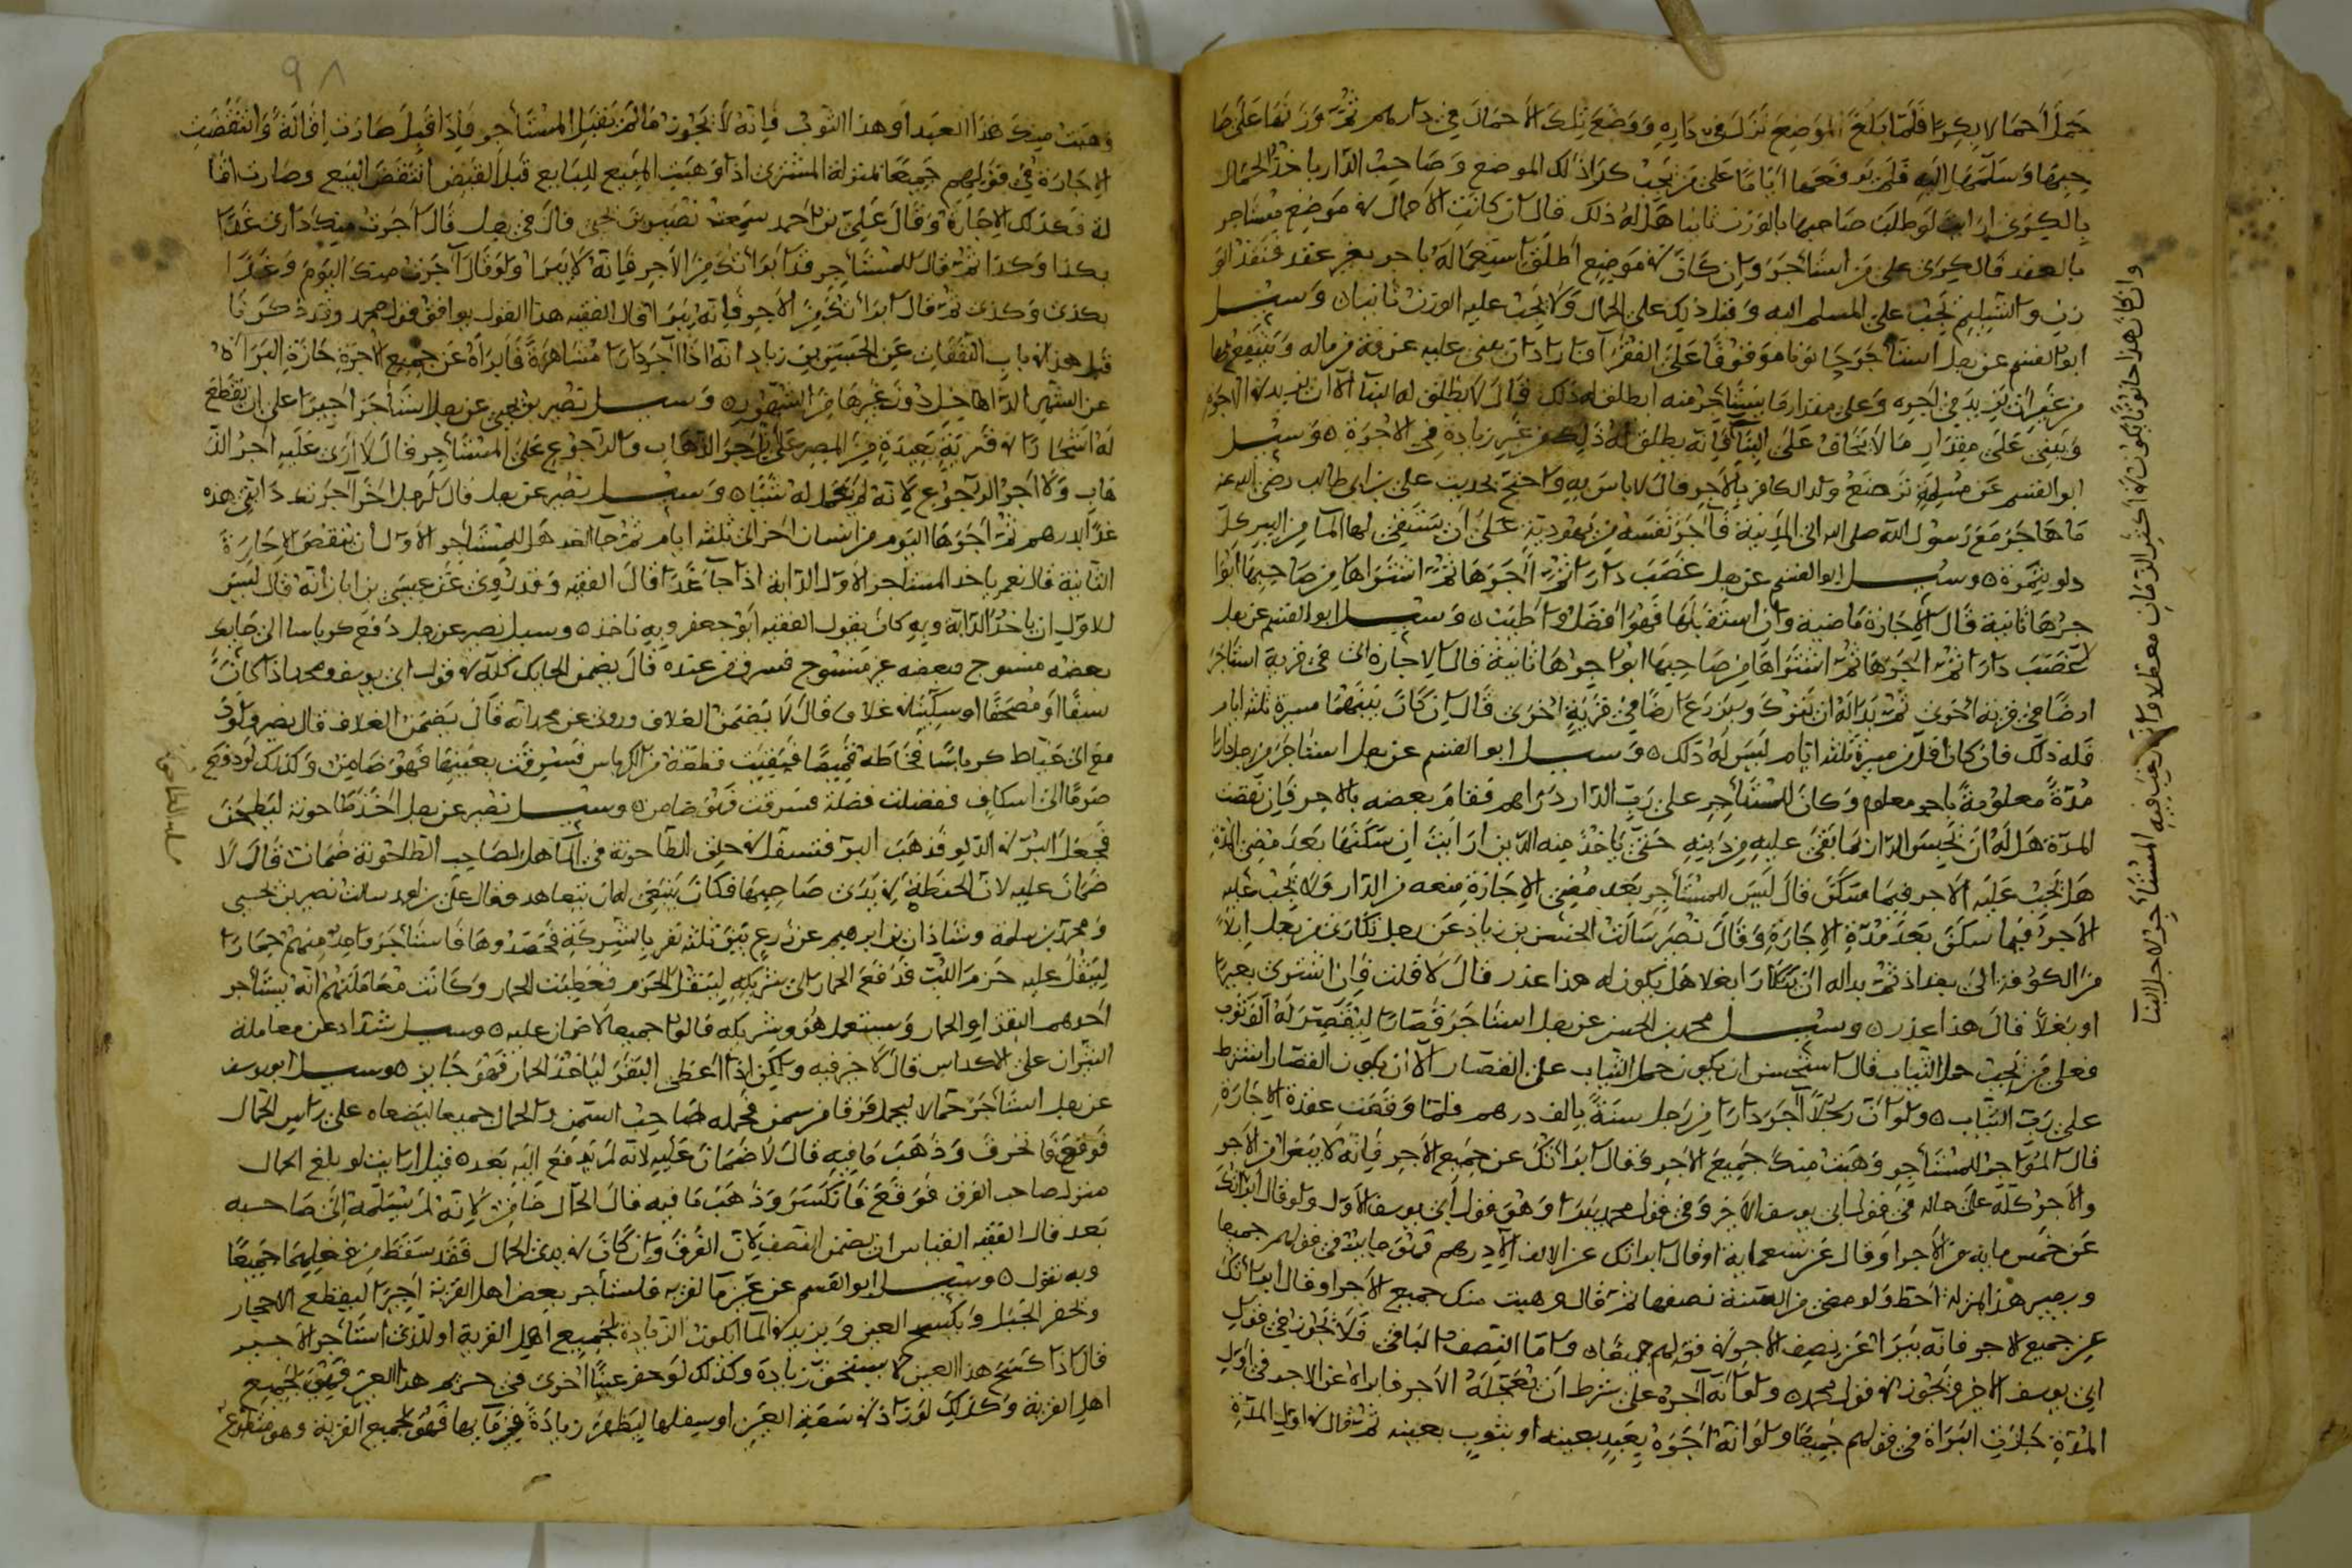 حمل احمالا بكرى فلما بلغ الموضع نزل في داره ووضع تلك الاحمال في داره ثم وزنها على صا
حبها وسلمها اليه فلم يرفعها اياما على من يجب كراذلك الموضع وصاحب الدار ياخذ الحمال
بالكرى ارايت لو طلب صاحبها بالوزن ثانيا هل له ذلك قال ان كانت الاحمال في موضع مستاجر
بالعقد فالكرى على من استاجر وان كان في موضع اطلق استعماله باجر بغير عقد
والتسليم يجب على المسلم اليه وقبل ذلك على الحمال ولا يجب عليه الوزن ثانيا وسيل
ابو القسم عن رجل استاجر حانوتا موقوفا على الفقرا فاراد ان يبنى عليه غرفة من ماله وينتفع بها
من غير ان يزيد في اجره وعلى مقدار ما يستاجر منه ايطلق له ذلك قال لا يطلق له البنا الا ان يزيد في الاجرة
ويبني على مقدار ما لا يخاف على البنا فانه يطلق له ذلك من غير زيادة في الاجرة وسيل
ابو القسم عن مسلمة ترضع ولد الكافر بالاجر قال لا باس به واحتج بحديث علي بن ابي طالب رضي الله عنه
ما هاجر مع رسول الله صلى الله الى المدينة فآجر نفسه من يهودية على ان يستقي لها الما من البير كل
دلو بتمرة وسيل ابو القسم عن رجل غصب دارا ثم آجرها ثم اشتراها من صاحبها
جرها ثانية قال الاجارة ماضية وان استقبلها فهو افضل واطيب وسيل ابو القسم عن رجل
غصب دارا ثم اجرها ثم اشتراها من صاحبها ايواجرها ثانية قال الاجارة في قرية استاجر
ارضا في قرية اخرى ثم بدا له ان يترك ويزرع ارضا في قرية اخرى قال ان كان بينهما مسيرة ثلثه ايام
فله ذلك فان كان اقل من مسيرة ثلثه ايام ليس له ذلك وسيل ابو القسم عن رجل استاجر من رجل دارا
مدة معلومة باجر معلوم وكان للمستاجر على رب الدار دراهم فقام بعضه بالاجر فان نقضت
المدة هل له ان يحبس الدار بما بقي عليه من دينه حتى ياخذ منه الدين ارايت ان سكنها بعد مضي المدة
هل يجب عليه الاجر فيما سكن قال ليس للمستاجر بعد مضي الاجارة منعه من الدار ولا يجب عليه
الاجر فيما سكن بعد مدة الاجارة وقال نصر سالت الحسن بن زياد عن رجل تكارى من رجل ابلا
من الكوفة الى بغداد ثم بدا له ان يتكارا بغلا هل يكون له هذا عذر قال لا قلت فان اشترى بعيرا
او بغلا قال هذا عذر وسيل محمد بن الحسن عن رجل استاجر قصارا ليقصر له الف ثوب
فعلى من يجب حمل الثياب قال استحسن ان يكون حمل الثياب على القصار الا ان يكون القصار اشترط
على رب الثياب ولو ان رجلا آجر دارا من رجل سنة بالف درهم فلما وقعت عقدة الاجارة
قال المواجر للمستاجر وهبت منك جميع الاجر او قال ابراتك عن جميع الاجر فانه لا يبرا من الاجر
والاجر كله على حاله في قول ابي يوسف الاخر وفي قول محمد يبرا وهو قول ابي يوسف الاول ولو قال ابراتك
عن خمس مايه من الاجر او قال عن تسعمايه او قال ابراتك عن الالف الا درهم فهو جايز في قولهم جميعا
ويصير هذا بمنزلة احط ولو مضى من السنة نصفها ثم قال وهبت منك جميع الاجر او قال ابراتك
عن جميع الاجر فانه يبرا عن نصف الاجر في قولهم جميعا واما النصف الباقي فلا يجوز في قول
ابي يوسف الاخر ويجوز في قول محمد ولو انه آجره على شرط ان يعجل له الاجر فابراه عن الاجر في اول
المدة جازت البراة في قولهم جميعا ولو انه اجره بعبد بعينه او بثوب بعينه ثم قال في اول المدة
وان كان هذا حانوتا يكون في اكثر الزمان معطلا وانما رغب فيه المستاجر لاجل البنا
٩٨
وهبت منك هذا العبد او هذا الثوب فانه لا يجوز ما لم يقبل المستاجر فاذا قبل صارت اقالة وانتقضت
الاجارة في قولهم جميعا بمنزلة المشترى اذا وهبت المبيع للبايع قبل القبض انتقض البيع وصارت اقا
لة فكذلك الاجارة وقال علي بن احمد سمعت نصير بن يحيى قال في رجل قال اجرت منك داري غدا
بكذا وكذا ثم قال للمستاجر قد ابراتك من الاجر فانه لا يبرا ولو قال آجرت منك اليوم وغدا
بكذى وكذى ثم قال ابراتك من الاجر فانه يبرا قال الفقيه هذا القول يوافق قول محمد وقد ذكرنا
قبل هذا في باب النفقات عن الحسن بن زياد انه اذا آجر دارا مشاهرة فابراه عن جميع الاجرة جازة البراة
عن الشهر الداخل دون غيرها من الشهور وسيل نصير بن يحيى عن رجل استاجر اجيرا على ان يقطع
له اشجارا في قرية بعيدة من المصر على اجر الذهاب والرجوع على المستاجر قال لا ارى عليه اجر الذ
هاب ولا اجر الرجوع لانه لم يعمل له شيا وسيل نصير عن رجل قال لرجل اخر آجرتك دابتي هذه
غدا بدرهم ثم اجرها اليوم من انسان اخر الى ثلثه ايام ثم جا الغد هل للمستاجر الاول ان ينقض الاجارة
الثانية قال نعم ياخذ المستاجر الاول الدابة اذا جا غدا قال الفقيه وقد روى عن عيسى بن ابان انه قال ليس
للاول ان ياخذ الدابة وبه كان يقول الفقيه ابو جعفر وبه ناخذ وسيل نصير عن رجل دفع كرباسا الى حايك
بعضه منسوج وبعضه غير منسوج فسرق من عنده قال يضمن الحايك كله في قول ابي يوسف ومحمد اذا كان
سيفا او مصحفا او سكينا في غلاف قال لا يضمن الغلاف وروى عن محمد انه قال يضمن الغلاف قال نصير ولو د
فع الى خياط كرباسا فخاطه قميصا فبقيت قطعة من الكرباس فسرقت بعينها فهو ضامن وكذلك لو دفع
صرما الى اسكاف ففضلت فضلة فسرقت فهو ضامن وسيل نصير عن رجل اخذ طاحونة ليطحن
فجعل البر في الدلو فذهب البر في الما هل لصاحب الطاحونة ضمان قال لا
ضمان عليه لان الحنطة في يدى صاحبها فكان ينبغي له ان يتعاهد وقال علي بن احمد سالت نصير بن يحيى
ومحمد بن سلمة وشاذان بن ابرهيم عن زرع بين ثلثه نفر بالشركة فحصدوها فاستاجر واحد منهم حمارا
لينقل عليه حزم فدفع الحمار الى شريكه لينقل الحزم فعطبت الحمار وكانت معاملتهم انه يستاجر
احدهم البقر او الحمار ويستعمله هو وشريكه قالوا جميعا لا ضمان عليه وسيل شداد عن معاملة
الثيران على الاكداس قال لا خير فيه ولكن اذا اعطى البقر لياخذ الحمار فهو جايز وسيل ابو يوسف
عن رجل استاجر حمالا ليحمل فرقا من سمن فحمله صاحب السمن والحمال جميعا ليضعاه على راس الحمال
فوقع فانخرق وذهب ما فيه قال لا ضمان عليه لانه لم يدفع اليه بعد قيل ارايت لو بلغ الحمال
منزل صاحب الفرق فوقع فانكسر وذهب ما فيه قال الحمال ضامن لانه لم يسلمه الى صاحبه
بعد قال الفقيه القياس ان يضمن النصف لان الفرق وان كان في يدى الحمال فقد سقط من فعلهما جميعا
وبه نقول وسيل ابو القسم عن عين ما لقرية فاستاجر بعض اهل القرية اجيرا ليقطع الاحجار
ويحفر الجبل ويكسح العين ويزيد في الما ايكون الزيادة لجميع اهل القرية او للذي استاجر الاجير
قال اذا كسح هذا العين لا يستحق زيادة وكذلك لو حفر عينا اخرى في حريم هذا العين فهو لجميع
اهل القرية وكذلك لو زاد في سعة العين او سفلها ليظهر زيادة في مايها فهو لجميع القرية وهو متطوع